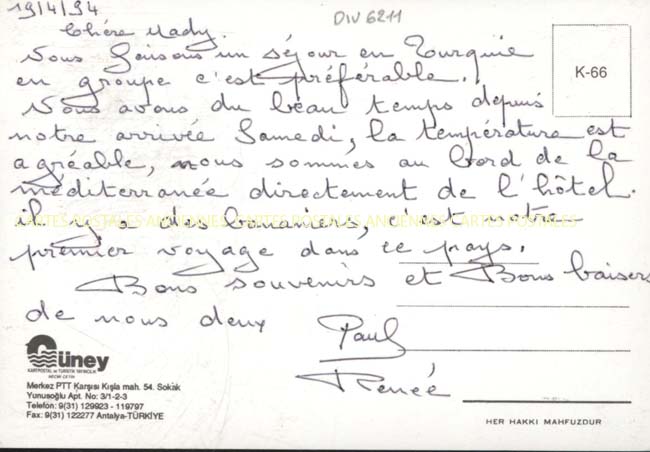 19/4/94
DIV 6211
Chére Mady.
Nous faisons un séjour en Turquie
en groupe c'est préférable.
K-66
Nous avons du beau temps depuis
notre arrivée Samedi, la température est
agréable, nous sommes au bord de la
méditerranée directement de l'hôtel.
il y a des bananiers, est notre
CARTES POSTALES ANCIENNES CARTES POSTALES ANCIENNES CARTES POSTALES
premier voyage dans ce pays.
Bons souvenirs et Bons baisers
de nous deux Paul
Renée
Güney
KARTPOSTAL ve TURİSTİK YAYINCILIK
Merkez PTT Karşısı Kışla mah. 54. Sokak
Yunusoğlu Apt. No: 3/1-2-3
Telefon: 9(31) 129923 - 119797
Fax: 9(31) 122277 Antalya-TÜRKİYE
HER HAKKI MAHFUZDUR